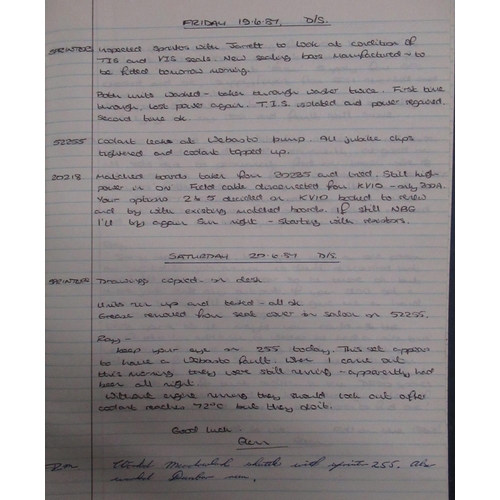 FRIDAY 19.6.87. D/S.
SPRINTERS Inspected Sprinter with Jarrett to look at condition of
TIS and VIS seals. New sealing bars manufactured - to
be fitted tomorrow morning.
Both units washed - taken through washer twice. First time
through, lost power again. T.I.S. isolated and power regained.
Second time ok.
52255 Coolant leaks at Webasto pump. All jubilee clips
tightened and coolant topped up.
20218 Matched boards taken from 20225 and tried. Still high
power in 'ON'. Field cable disconnected from KV10 - only 200A.
Your options 2 & 5 decided on. KV10 booked to renew
and try with existing matched boards. If still NBG
I'll try again Sun night - starting with resistors.
SATURDAY 20.6.87 D/S.
SPRINTERS Drawings copied - on desk
Units run up and tested - all ok
Grease removed from seat cover in saloon on 52255.
Ray -
Keep your eye on 255 today. This set appears
to have a Webasto fault. When I came out
this morning they were still running - apparently had
been all night.
Without engine running they should lock out after
coolant reaches 72°C but they don't.
Good luck -
Ron Worked shuttle with sprinter 255. Also
worked run.